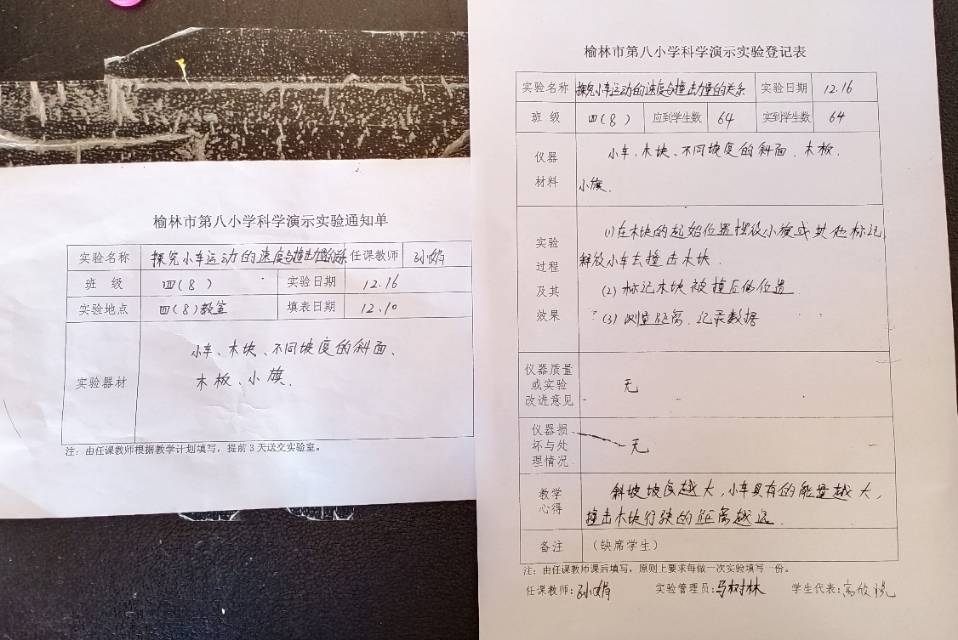 榆林市第八小学科学演示实验通知单
实验名称 探究小车运动的速度与撞击力量的关系 任课教师
班 级 四(8) 实验日期 12.16
实验地点 四(8)教室 填表日期 12.10
实验器材
小车、木块、不同坡度的斜面、
木板、小旗.
注: 由任课教师根据教学计划填写, 提前 3 天送交实验室。
榆林市第八小学科学演示实验登记表
实验名称 探究小车运动的速度与撞击力量的关系 实验日期 12.16
班 级 四(8) 应到学生数 64 实到学生数 64
仪器
材料
小车、木块、不同坡度的斜面、木板、
小旗.
实验
过程
及其
效果
(1)在木块的起始位置摆放小旗或其他标记
释放小车去撞击木块.
(2)标记木块被撞后的位置
(3)测量距离,记录数据
仪器质量
或实验
改进意见
无
仪器损
坏与处
理情况
无
教学
心得
斜坡坡度越大,小车具有的能量越大,
撞击木块行驶的距离越远.
备注 (缺席学生)
注: 由任课教师课后填写, 原则上要求每做一次实验填写一份。
任课教师: 实验管理员: 马树林 学生代表: